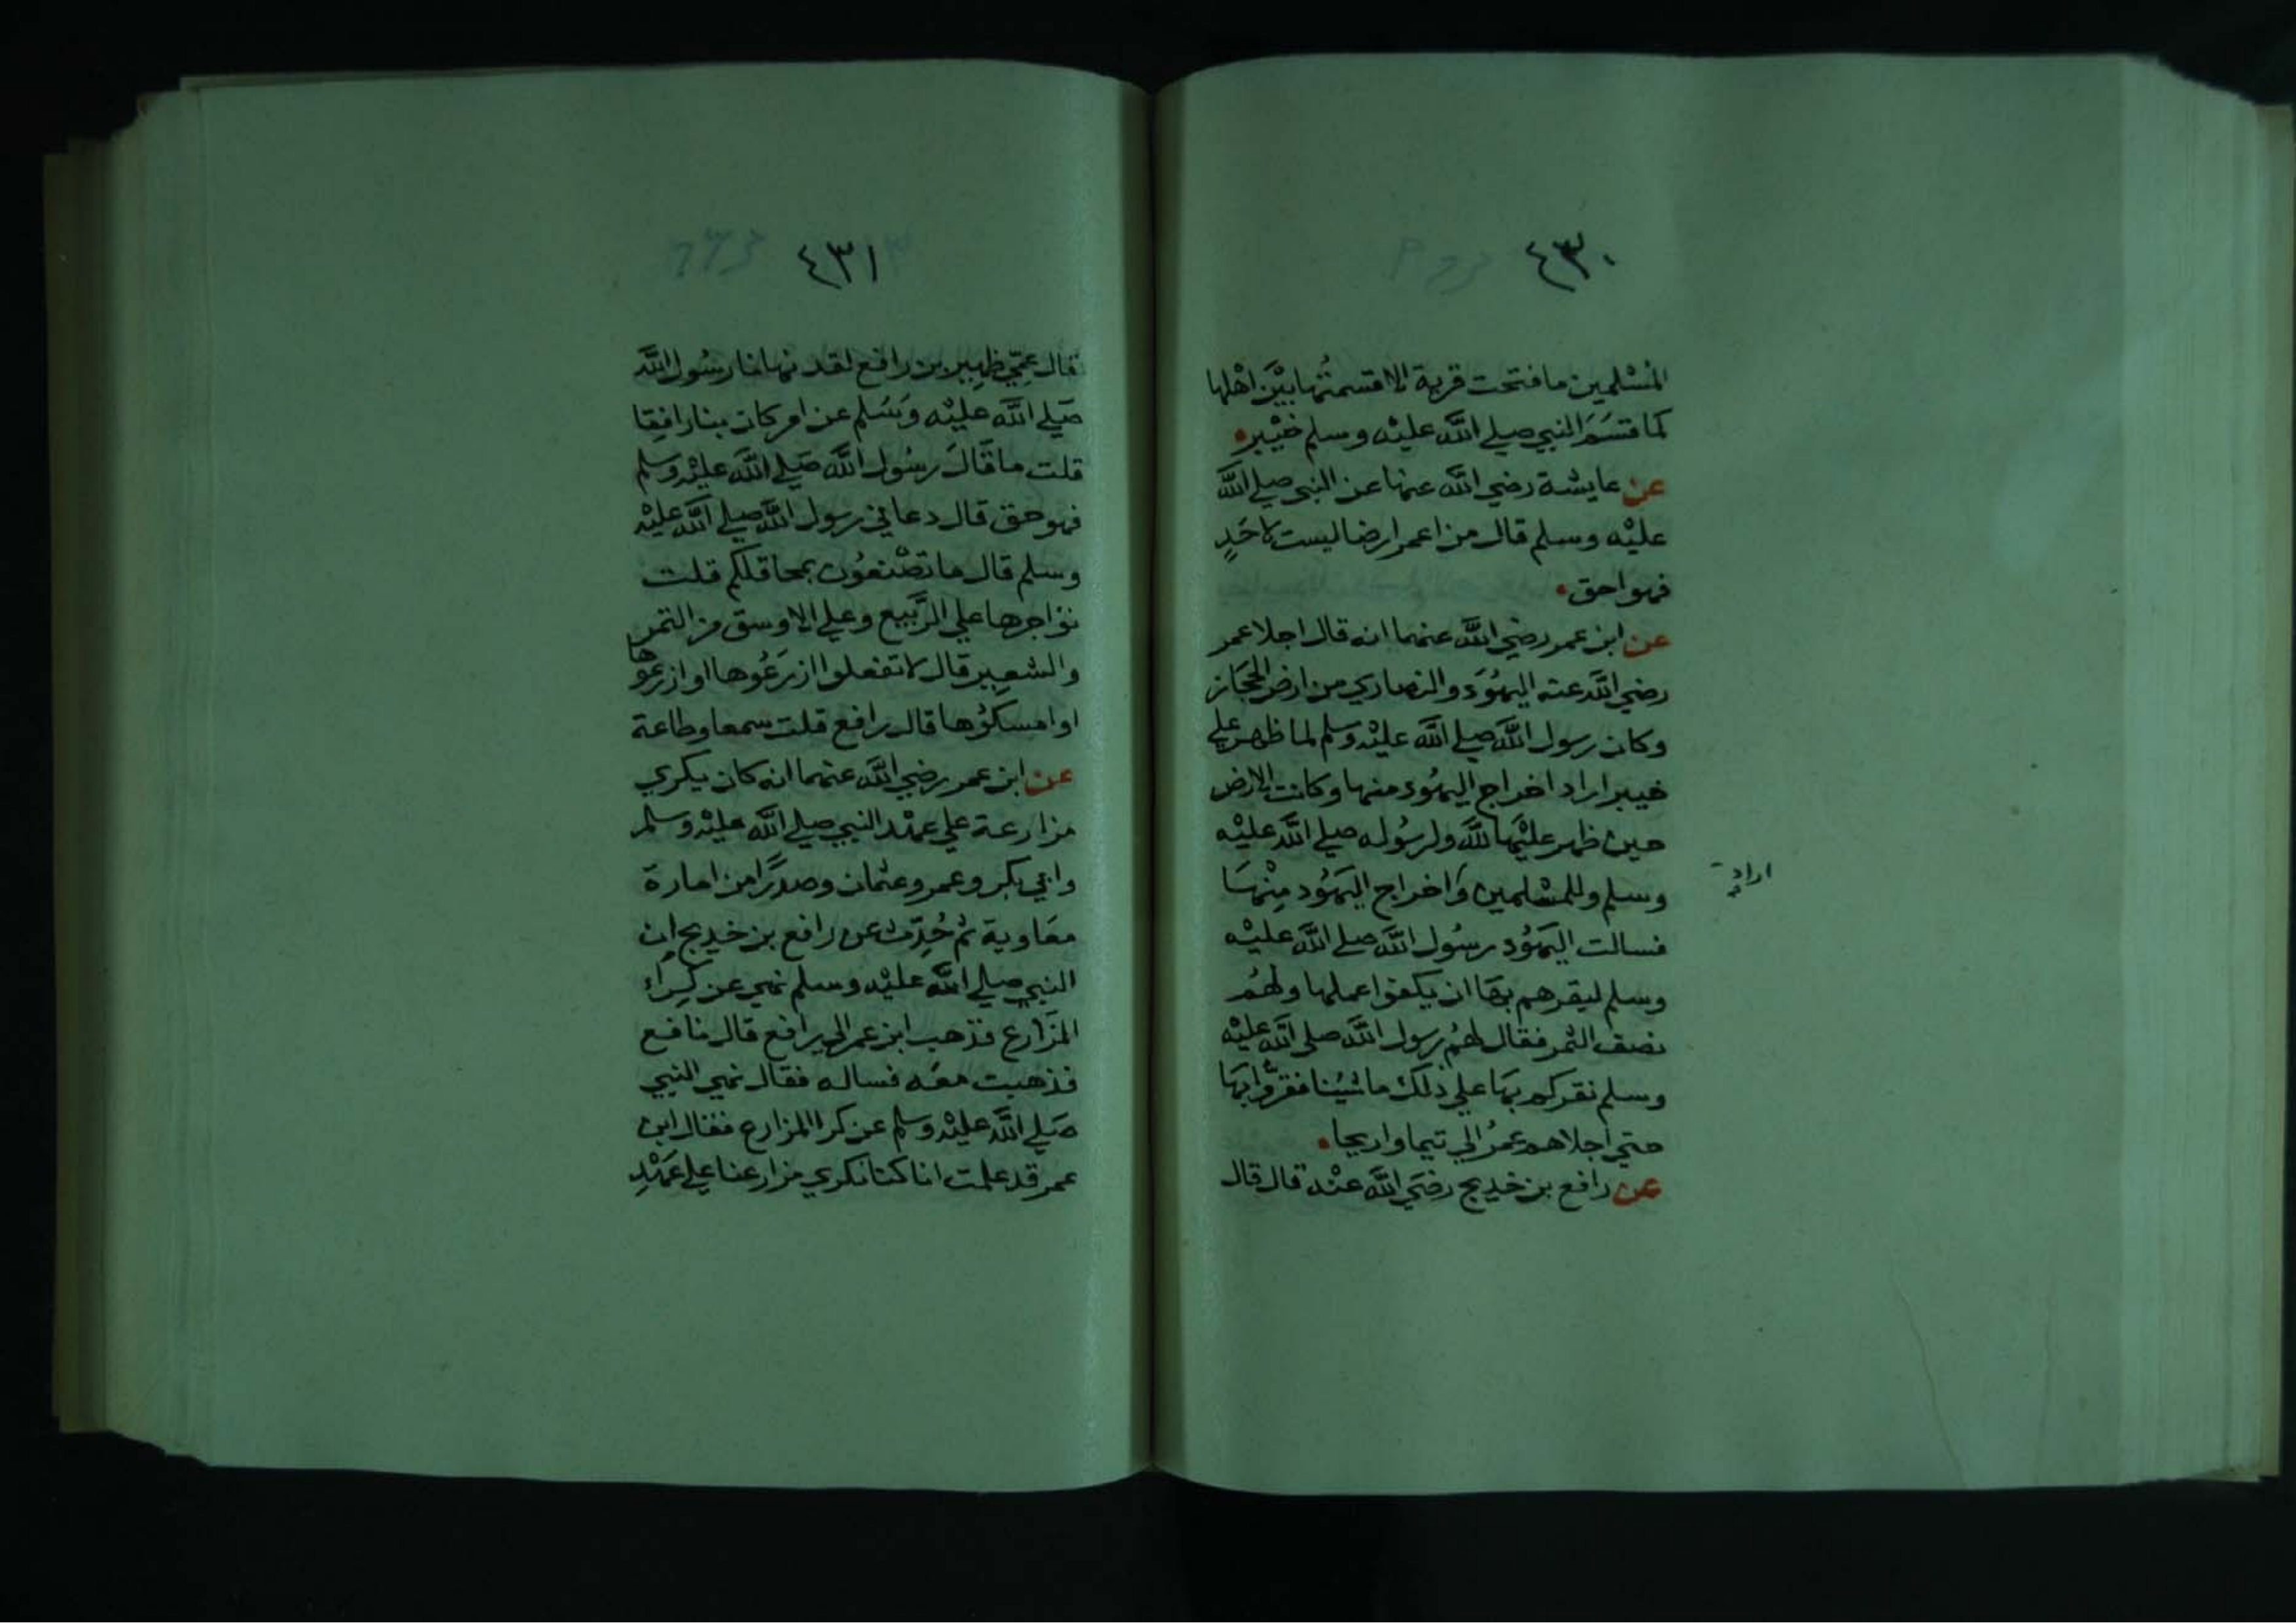 ٤٣٠
المُسْلمين ما فتحت قرية الا قسمتُها بيْن اهْلها
كما قسَمَ النبي صلي اللَّه عليْه وسلم خيْبر
عن عايشة رضي اللَّه عنها عن النبي صلي اللَّه
عليْه وسلم قال من اعمر ارضا ليست لاحَدٍ
فهو احق
عن ابن عمر رضي اللَّه عنهما انه قال اجلا عمر
رضي اللَّه عنه اليهُوَد والنصاري من ارض الحجَاز
وكان رسول اللَّه صلي اللَّه عليْه وسلم لما ظهر علي
خيبر اراد اخراج اليهُود منها وكانت الارض
حين ظهر عليْها للَّه ولرسُوله صلي اللَّه عليْه
وسلم وللمسْلمين وَاخراج اليَهُود مِنْهَا
اراد
فسالت اليَهُود رسُول اللَّه صلي اللَّه عليْه
وسلم ليقرهم بهَا ان يكفوا عملها ولهُم
نصف الثمر فقال لهُم رسول اللَّه صلي اللَّه عليْه
وسلم نقركم بهَا علي ذلك ما شيُنا فقرُّوا بهَا
حتي اجلاهم عمرُ الي تيما واريحا
عن رافع بن خديج رضَي اللَّه عنْه قال قال
٤٣١
قال عمِّي ظهِير بن رافع لقد نهانا رسُول اللَّه
صَلي اللَّه عليْه وَسَلم عن امر كان بنا رافِقا
قلت ما قَالَ رسُول اللَّه صَلي اللَّه عليْه وسلم
فهو حق قال دعاني رسول اللَّه صلي اللَّه عليْه
وسلم قال ما تصْنعُون بمحاقلكم قلت
نؤاجرها علي الرَّبيع وعلي الاوسق من التمر
والشعِير قال لا تفعلوا ازرَعُوها او ازرعوها
او امسكوُها قال رافع قلت سمعا وطاعة
عن ابن عمر رضي اللَّه عنهما انه كان يكري
مزارعة علي عهْد النبي صلي اللَّه عليْه وسلم
وابي بكر وعمر وعثمان وصدرًا من امارة
معَاوية ثم حُدِّث عن رافع بن خديج ان
النبي صلي اللَّه عليْه وسلم نهي عن كِراء
المزَارع فذهب ابن عمر الي رافع قال نافع
فذهبت معَه فساله فقال نهي النبي
صَلي اللَّه عليْه وسلم عن كرا المزارع فقال ابن
عمر قد علمت انا كنا نكري مزارعنا علي عَهْدِ